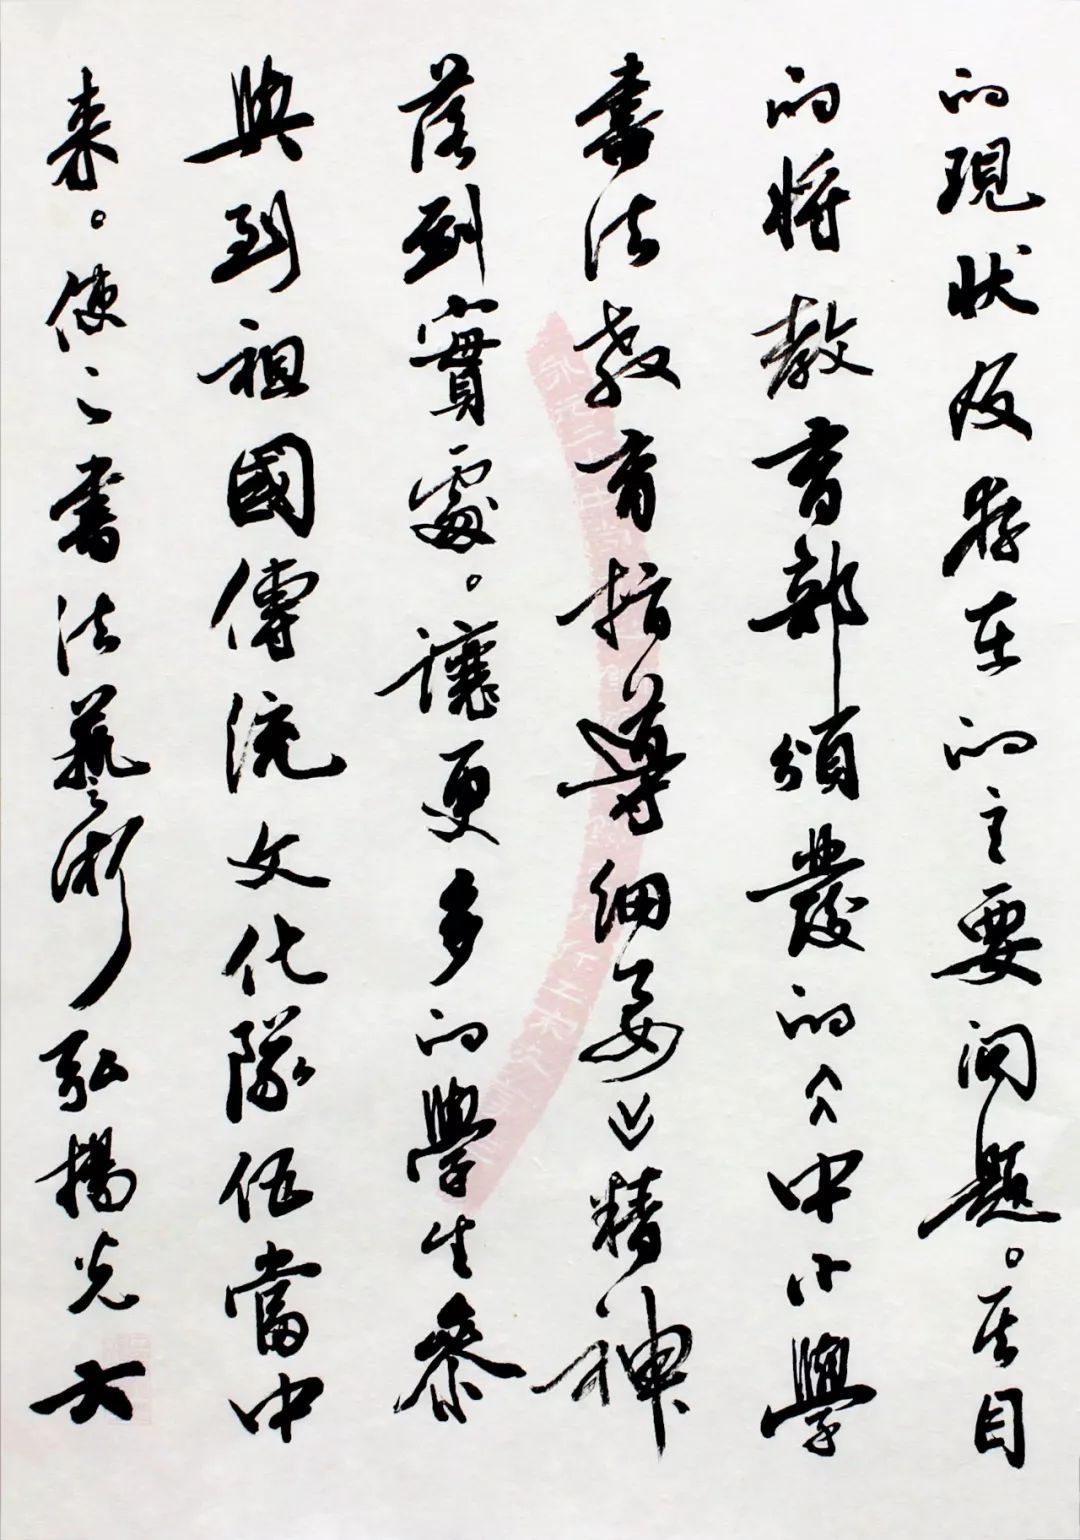 的現狀及存在的主要问题。其目
的将教育部頒發的《中小學
書法教育指導細要》精神
落到實處。讓更多的學生參
與到祖國傳統文化隊伍當中
来。使之書法藝術弘揚光大